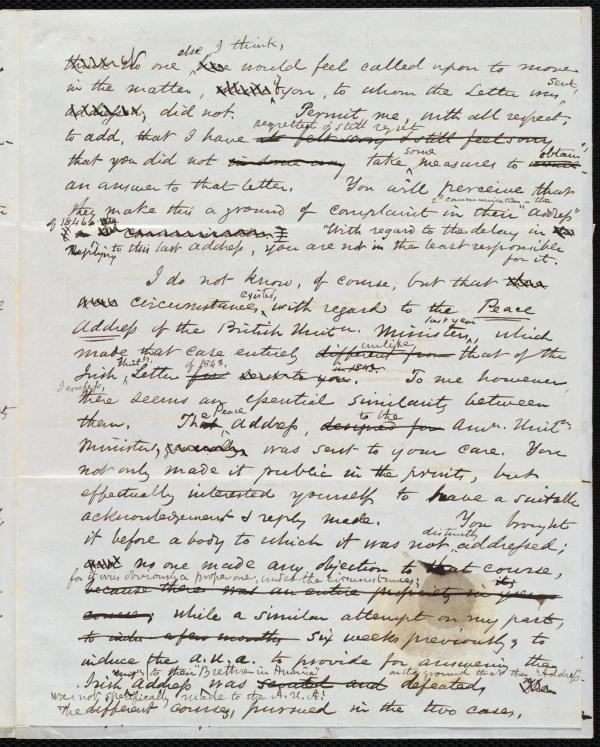 no one else, I think, would feel called upon to move
in the matter, if you, to whom the Letter was sent,
did not. Permit me, with all respect,
to add, that I have regretted & still regret
that you did not take some measures to obtain
an answer to that letter. You will perceive that
they make this a ground of complaint in their 2d communication – the "Address"
of 1846. With regard to the delay in
replying to this last address, you are not in the least responsible
for it.
I do not know, of course, but that
circumstances existed, with regard to the Peace
Address of the British Unitn. Ministers, last year, which
made that case entirely unlike that of the
Irish Unitn. Letter of 1843. To me however,
I confess, there seems an essential similarity between
them. The Peace Address, to the Amn. Unitn.
Ministers, was sent to your care. You
not only made it public in the prints, but
effectually interested yourself to have a suitable
acknowledgement & reply made. You brought
it before a body to which it was not distinctly addressed;
no one made any objection to that course,
for it was obviously a proper one, under the circumstances;
while a similar attempt on my part,
six weeks previously, to
induce the A.U.A. to provide for answering the
Irish Address to their Brethren in America was defeated, on the ground that the Address
was not specifically made to the A.U.A.!
The different courses, pursued in the two cases,